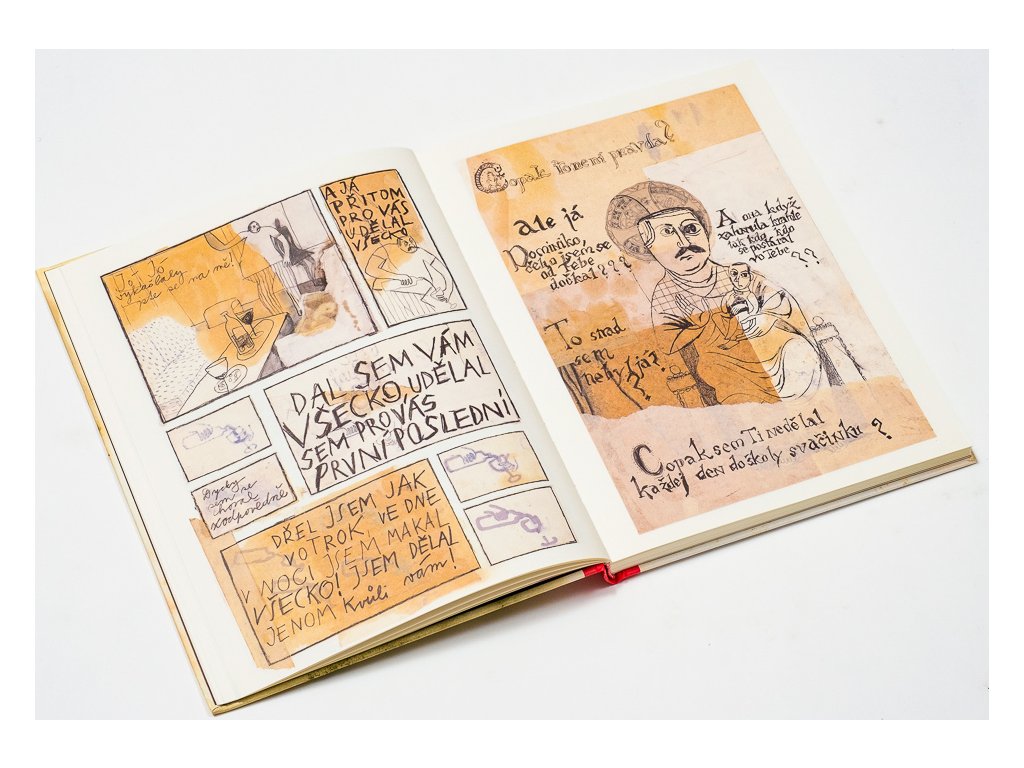 Jó, Jó
vykašlaly
jste se na mě!
A JÁ
PŘITOM
PRO VÁS
UDĚLAL
VŠECKO
DAL SEM VÁM
VŠECKO, UDĚLAL
SEM PRO VÁS
PRVNÍ POSLEDNÍ
Dycky
sem se
choval
zodpovědně
DŘEL JSEM JAK
VOTROK, VE DNE
V NOCI JSEM MAKAL
VŠECKO! JSEM DĚLAL
JENOM kvůli vám!
Copak to není pravda?
ale já
Dominiko,
sem se
od Tebe
dočkal???
A ona když
kdo
se postaral
vo tebe??
To snad
sem
nebyl já?
?
Copak sem Ti nedělal
každej den do školy svačinku?